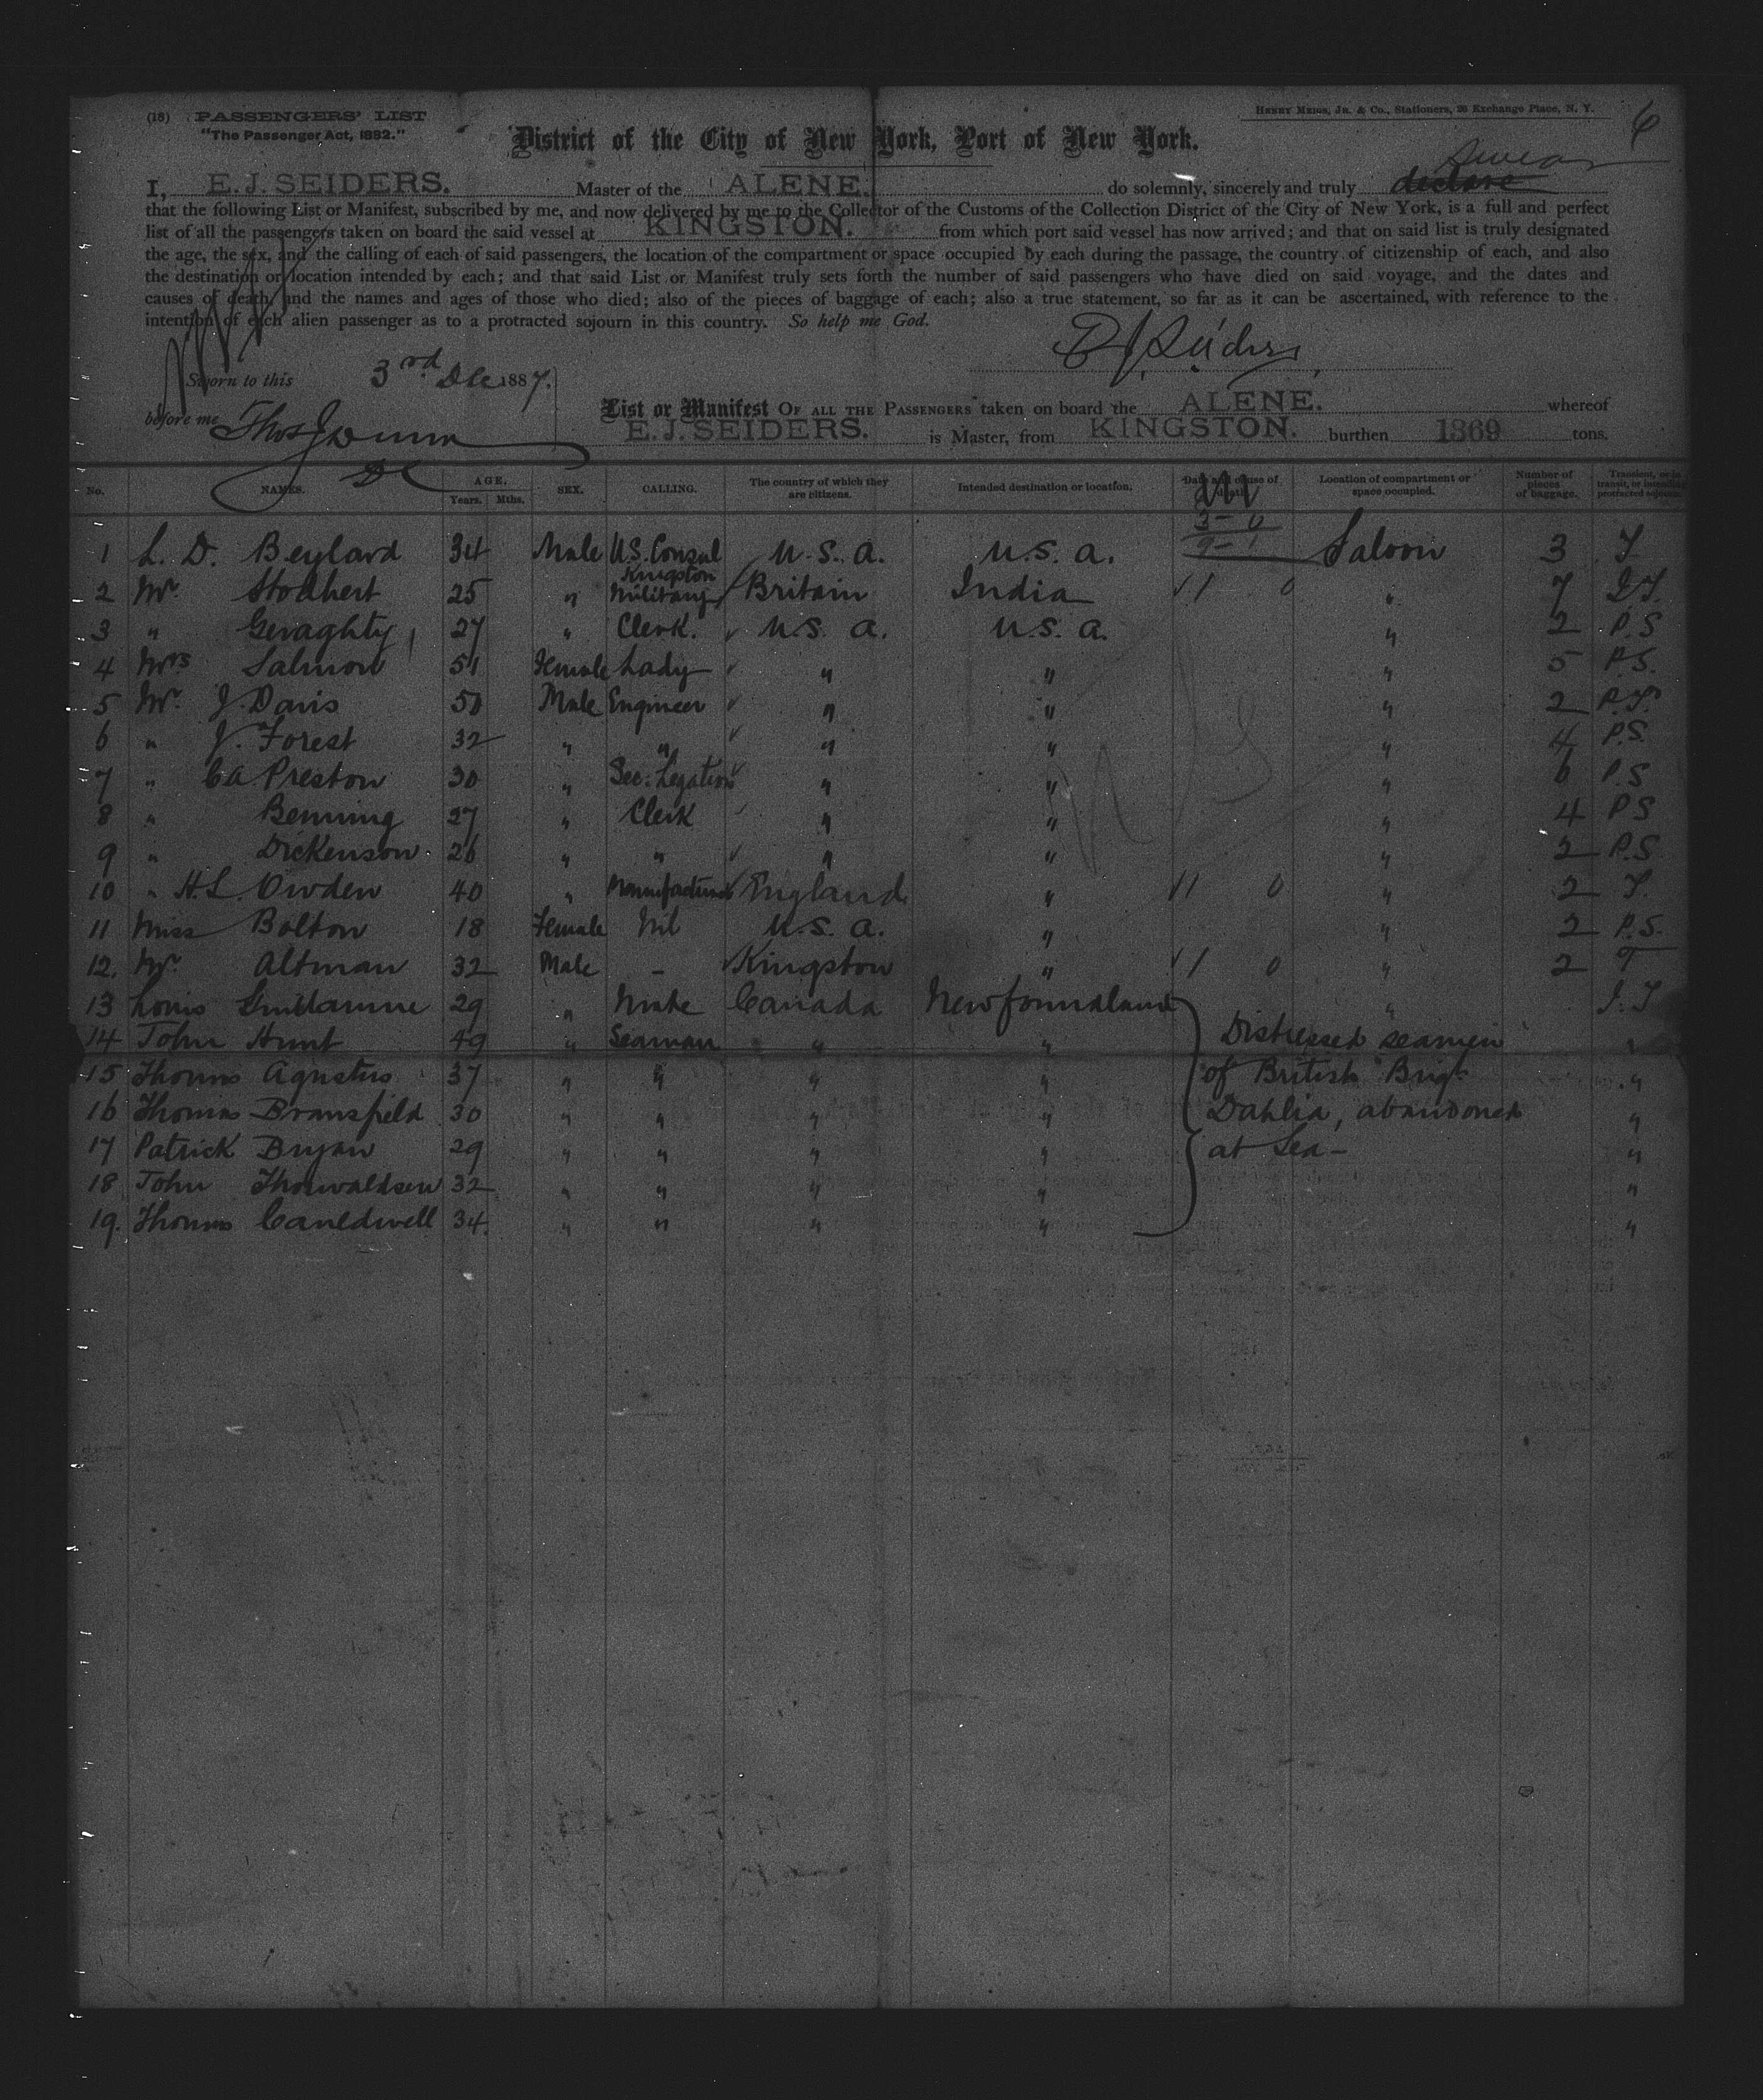 (18) PASSENGERS' LIST
"The Passenger Act, 1882."
HENRY MEIGS, JR. & CO., Stationers, 26 Exchange Place, N. Y.
6
District of the City of New York, Port of New York.
swear
I, E. J. SEIDERS. Master of the ALENE. do solemnly, sincerely and truly declare
that the following List or Manifest, subscribed by me, and now delivered by me to the Collector of the Customs of the Collection District of the City of New York, is a full and perfect
list of all the passengers taken on board the said vessel at KINGSTON. from which port said vessel has now arrived; and that on said list is truly designated
the age, the sex, and the calling of each of said passengers, the location of the compartment or space occupied by each during the passage, the country of citizenship of each, and also
the destination or location intended by each; and that said List or Manifest truly sets forth the number of said passengers who have died on said voyage, and the dates and
causes of death, and the names and ages of those who died; also of the pieces of baggage of each; also a true statement, so far as it can be ascertained, with reference to the
intention of each alien passenger as to a protracted sojourn in this country. So help me God.
E J Seiders
Sworn to this 3rd Dec 1887.
before me Thos J Dunn
DC
List or Manifest OF ALL THE PASSENGERS taken on board the ALENE. whereof
E. J. SEIDERS. is Master, from KINGSTON. burthen 1369 tons.
No. NAMES. AGE. Years. Mths. SEX. CALLING. The country of which they are citizens. Intended destination or location. Date and cause of death. Location of compartment or space occupied. Number of pieces of baggage. Transient, or in transit, or intending protracted sojourn.
3 - 0
9 - 1
1 L. D. Beylard 34 Male U.S. Consul Kingston U.S.A. U.S.A. Saloon 3 T
2 Mr. Stodhert 25 " Military Britain India 1 0 " 7 I.T.
3 " Geraghty 27 " Clerk. U.S. A. U.S. A. " 2 P.S
4 Mrs Salmon 51 Female Lady " " " 5 P.S.
5 Mr. J. Davis 50 Male Engineer " " " 2 P.S.
6 " J. Forest 32 " " " " " 4 P.S.
7 " CA Preston 30 " Sec. Legation " " " 6 P.S
8 " Benning 27 " Clerk " " " 4 P S
9 " Dickenson 26 " " " " " 2 P.S
10 " H.L. Owden 40 " Manufacturer England " 1 0 " 2 T.
11 Miss Bolton 18 Female Nil U.S. A. " " 2 P.S.
12. Mr. Altman 32 Male - Kingston " 1 0 " 2 T
13 Louis 29 " Mate Canada Newfoundland " I.T
14 John Hunt 49 " Seaman " " Distressed seamen "
15 Thomas Agustus 37 " " " " of British Brigt "
16 Thomas Bransfield 30 " " " " Dahlia, abandoned "
17 Patrick Bryan 29 " " " " at Sea - "
18 John Thorwaldsen 32 " " " " "
19. Thomas Cauldwell 34. " " " " "